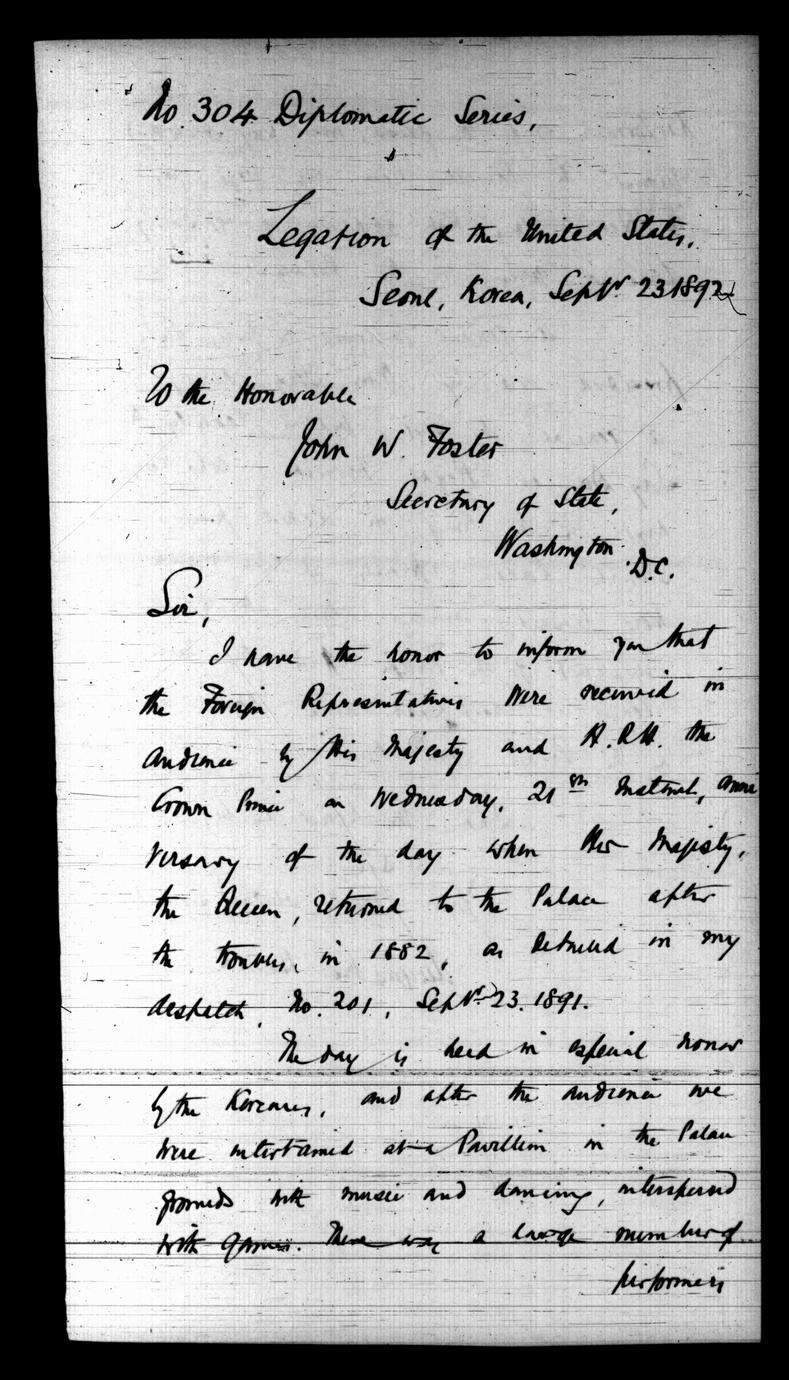 No. 304 Diplomatic Series.
Legation of the United States,
Seoul, Korea, Septr. 23 1892
To the Honorable
John W. Foster
Secretary of State,
Washington. D.C.
Sir,
I have the honor to inform you that
the Foreign Representatives were received in
audience by His Majesty and H.R.H. the
Crown Prince on Wednesday, 21st Instant, anni
versary of the day when Her Majesty,
the Queen, returned to the Palace after
the troubles, in 1882, as detailed in my
despatch, No. 201, Septr. 23. 1891.
The day is held in especial honor
by the Koreans, and after the audience we
were entertained at a Pavillion in the Palace
grounds with music and dancing, interspersed
with games. There was a large number of
performers